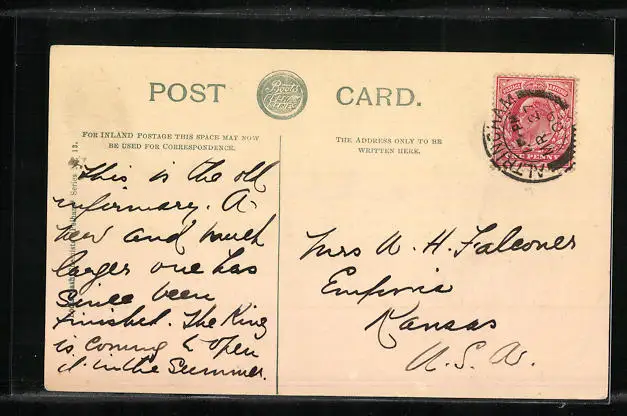 POST CARD.
Boots
FOR INLAND POSTAGE THIS SPACE MAY NOW
BE USED FOR CORRESPONDENCE.
THE ADDRESS ONLY TO BE
WRITTEN HERE.
This is the old
infirmary. A
new and much
larger one has
since been
finished. The King
is coming to open
it in the Summer.
Mrs A. H. Falconer
Emporia
Kansas
U. S. A.
ALTRINCHAM
ONE PENNY